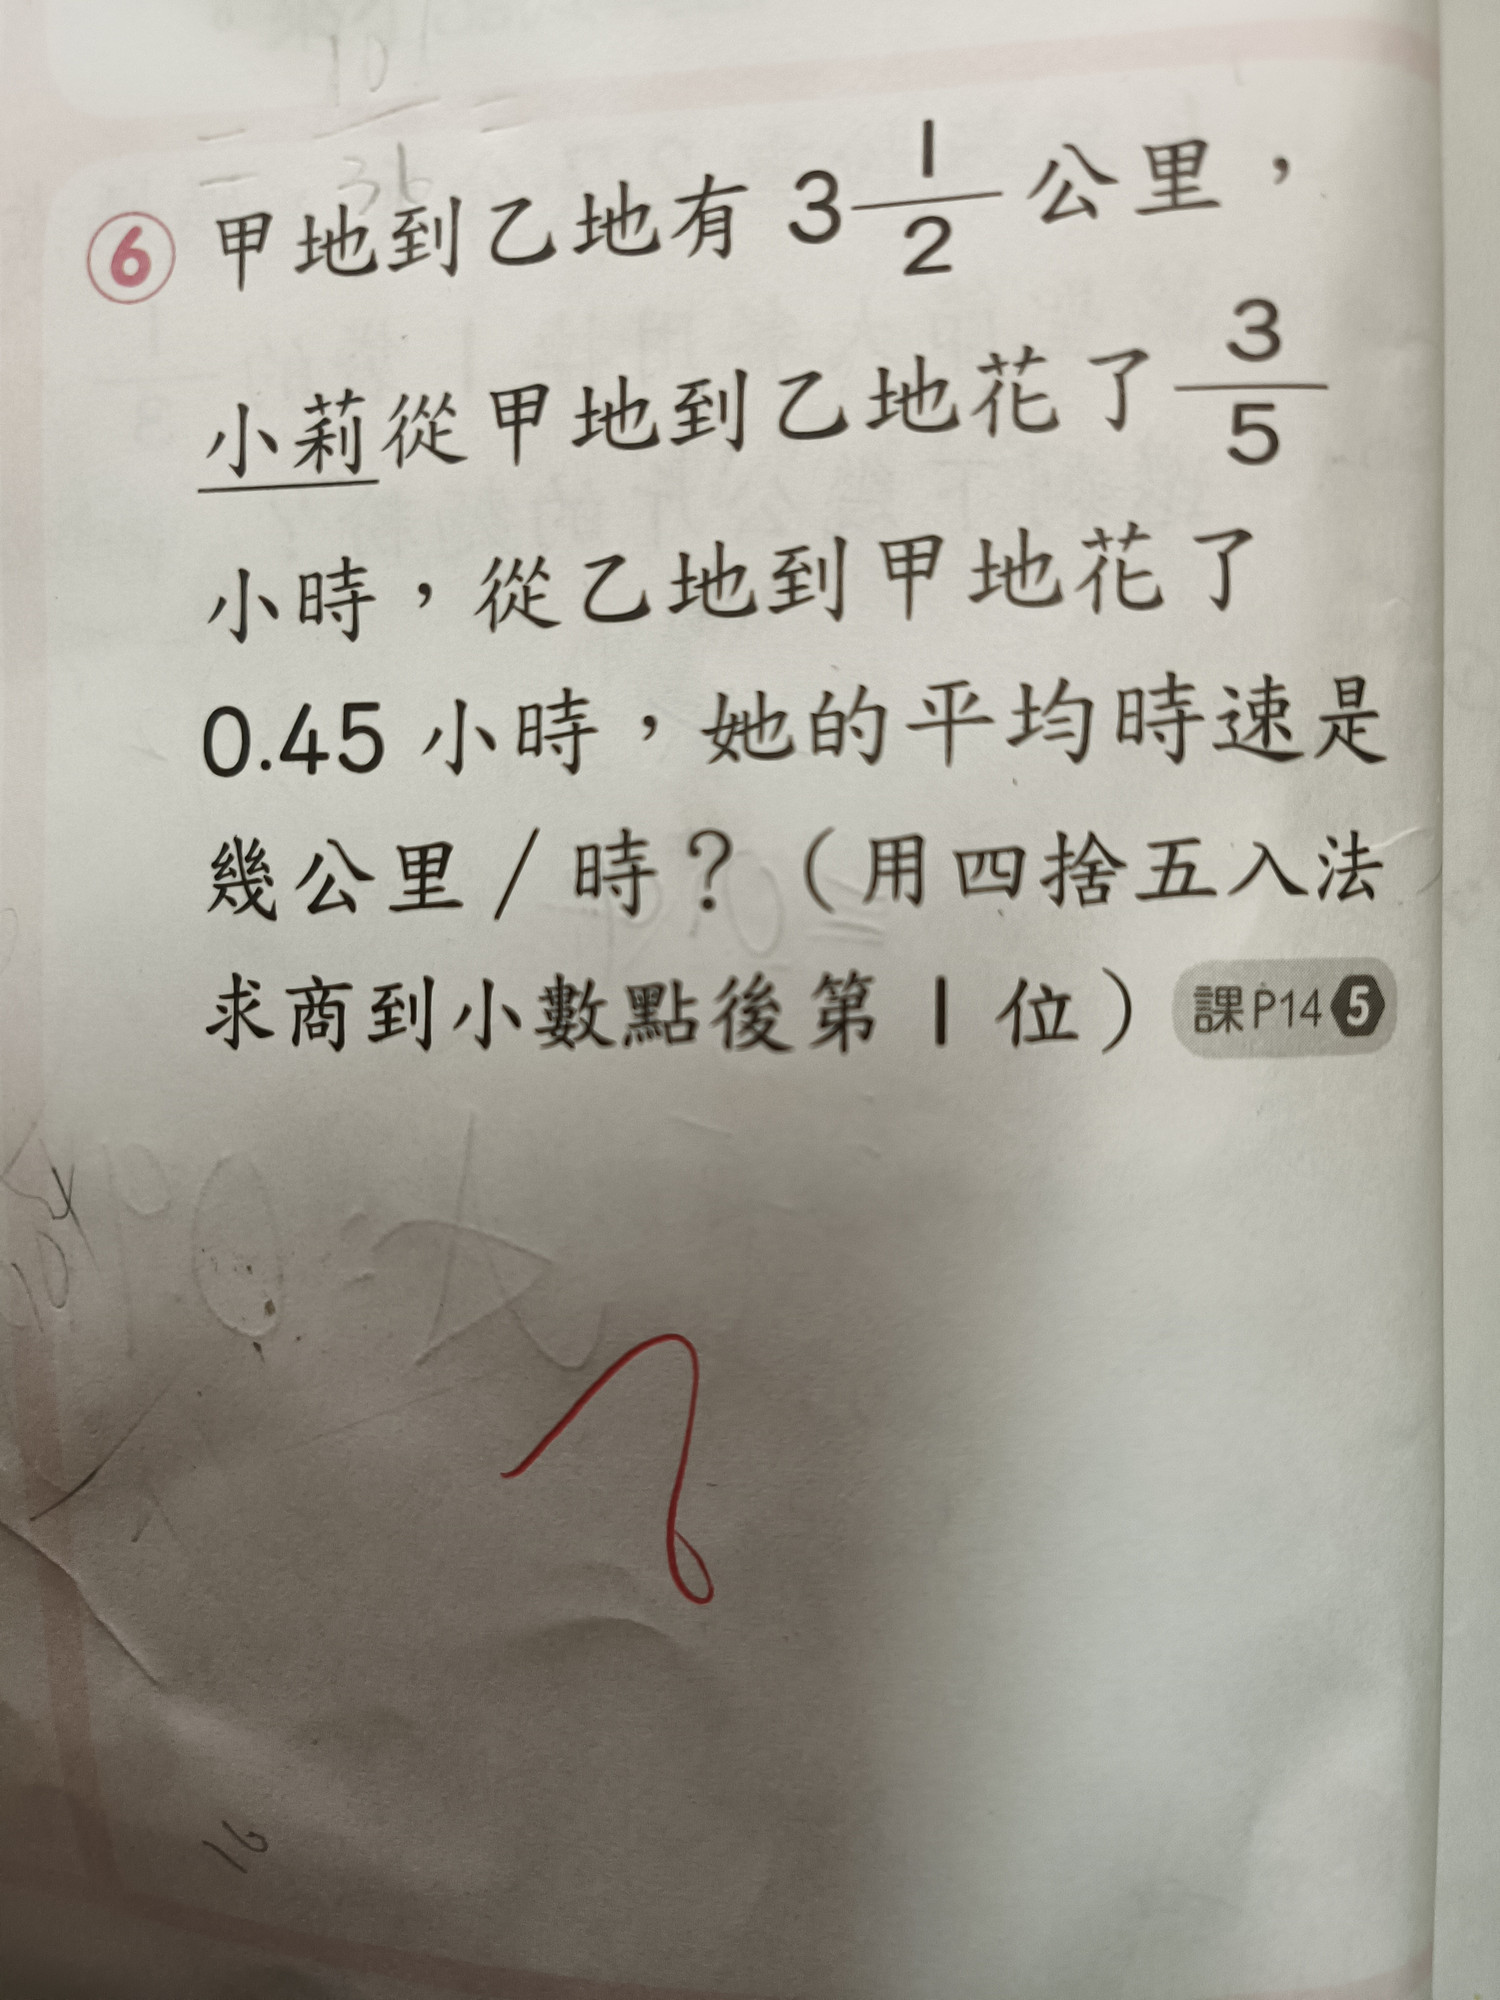 ⑥ 甲地到乙地有 3 1/2 公里，
小莉從甲地到乙地花了 3/5
小時，從乙地到甲地花了
0.45 小時，她的平均時速是
幾公里／時？（用四捨五入法
求商到小數點後第 1 位） 課P14 5
16